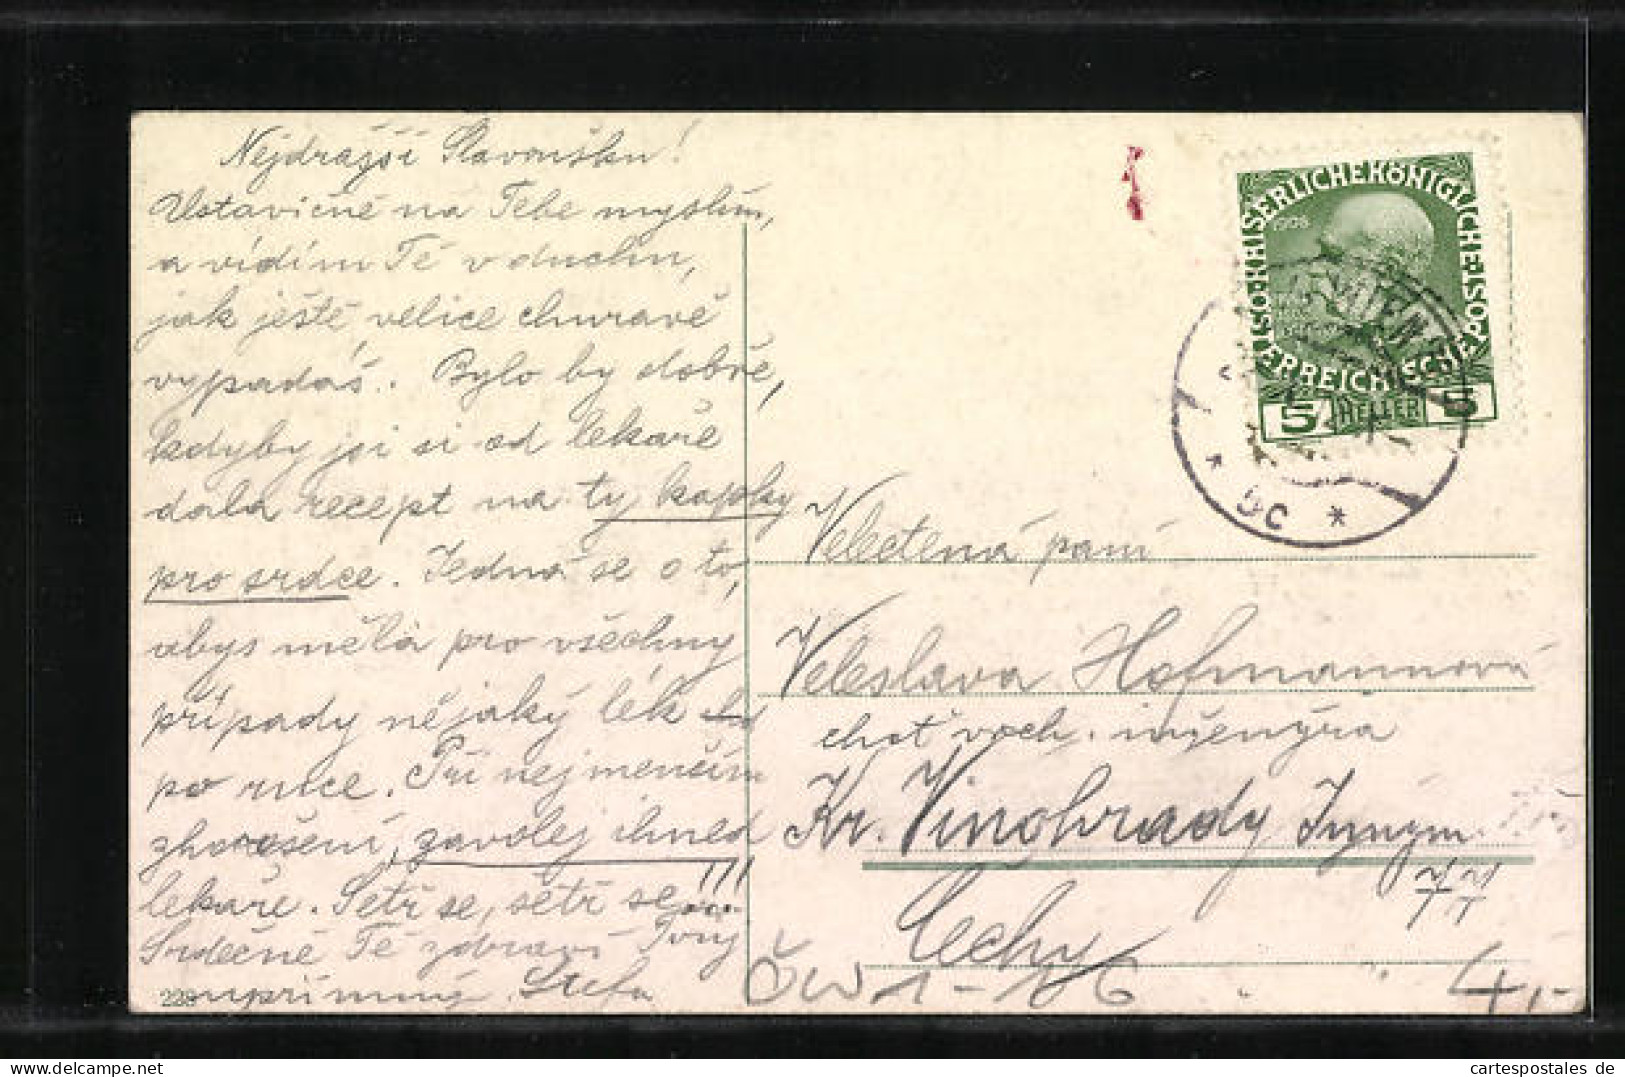 Nejdražší Slavoušku!
Ustavičně na Tebe myslím,
a vidím Tě v duchu,
jak ještě velice churavě
vypadáš. Bylo by dobře,
kdyby jsi si od lékaře
dala recept na ty kapky
pro srdce. Jedná se o to,
abys měla pro všechny
případy nějaký lék
po ruce. Při nejmenším
zhoršení, zavolej ihned
lékaře. Šetř se, šetř se!!!
Srdečně Tě zdraví Tvůj
upřímný Štefa
229
KAISERLICHEKÖNIGLICHE
ÖSTERREICHISCHE POST
1908
5 HELLER 5
* 5c *
Veletená paní
Veleslava Hofmannová
choť vrch. inženýra
Kr. Vinohrady
77
Čechy
ČW 1-16
4,-
cartespostales de